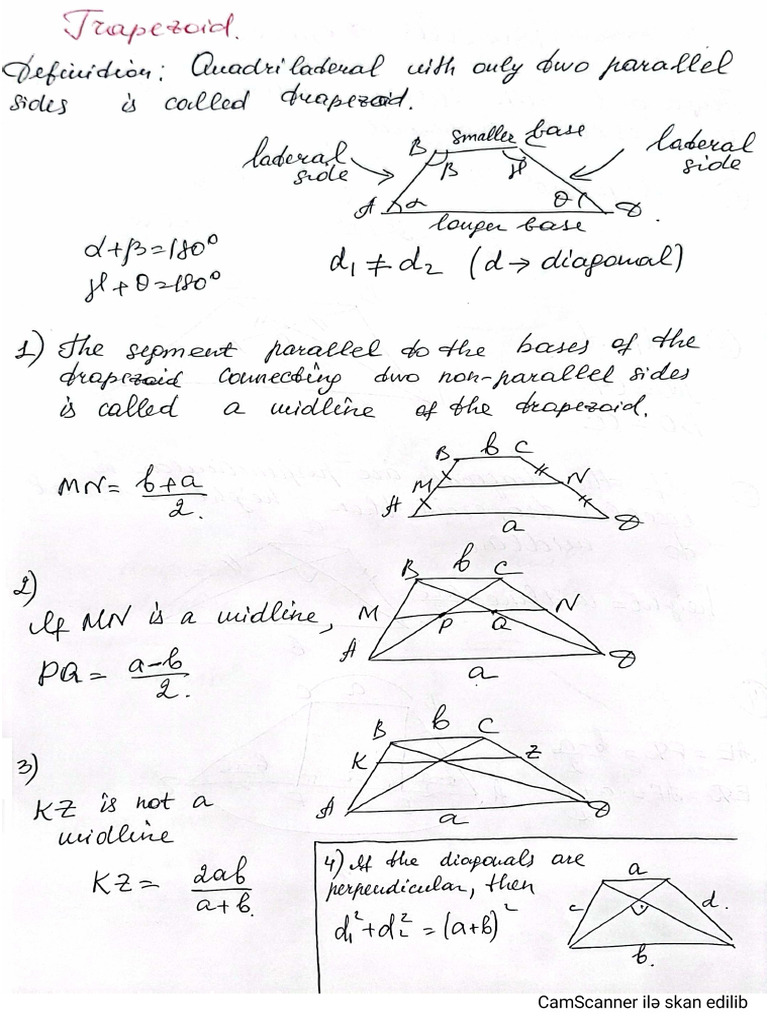 Trapezoid.
Definition: Quadrilateral with only two parallel
sides is called trapezoid.
lateral side
B smaller base
lateral side
β γ
A α θ D
longer base
α+β=180°
γ+θ=180°
d₁ ≠ d₂ (d → diagonal)
1) The segment parallel to the bases of the
trapezoid connecting two non-parallel sides
is called a midline of the trapezoid.
B b C
M N
A D
a
MN = b+a / 2.
2)
If MN is a midline,
PQ = a-b / 2.
B b C
M P Q N
A D
a
3)
KZ is not a
midline
KZ = 2ab / a+b.
B b C
K Z
A D
a
4) If the diagonals are
perpendicular, then
d₁²+d₂² = (a+b)²
a
c d.
b.
CamScanner ilə skan edilib